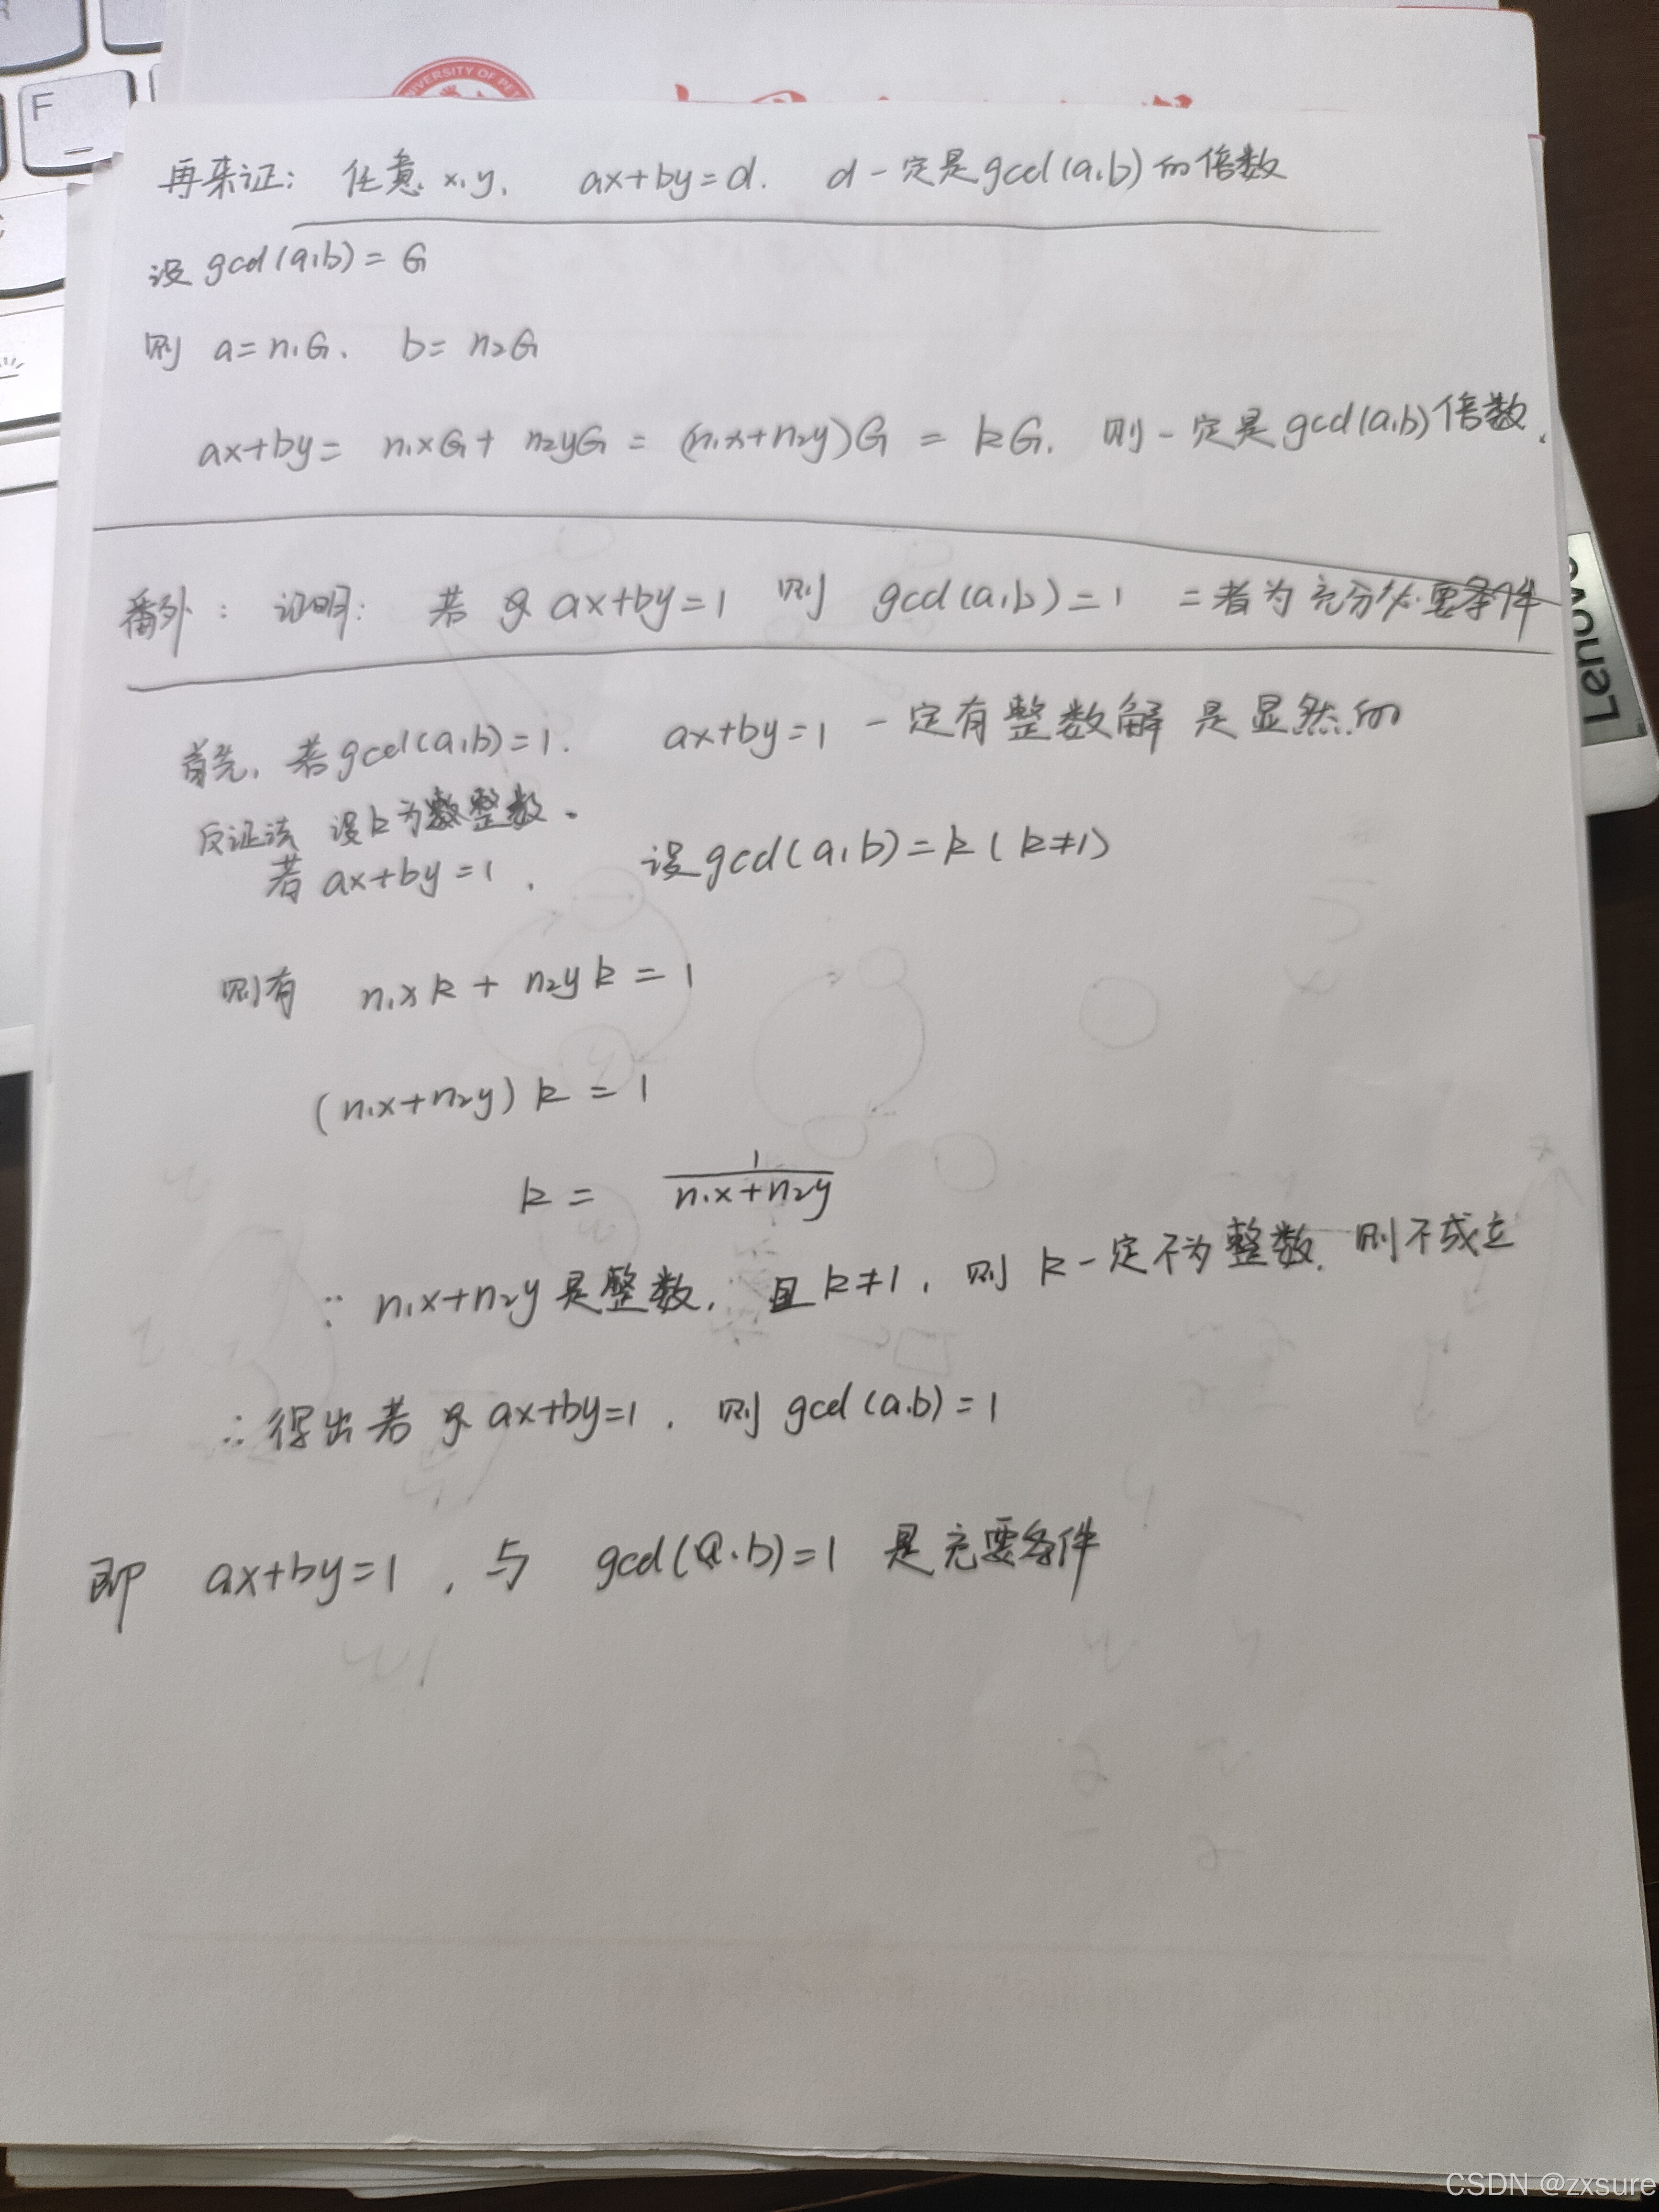 F
UNIVERSITY OF PET
再来证: 任意 x,y, ax+by=d. d一定是gcd(a,b)的倍数
设 gcd(a,b)= G
则 a=n₁G, b= n₂G
ax+by= n₁xG+ n₂yG = (n₁x+n₂y)G = kG. 则一定是gcd(a,b)倍数.
番外: 证明: 若 ax+by=1 则 gcd(a,b)=1 二者为充分必要条件
首先, 若gcd(a,b)=1. ax+by=1 一定有整数解 是显然的
反证法 设k为整数.
若 ax+by=1, 设gcd(a,b)=k(k≠1)
则有 n₁xk + n₂yk = 1
(n₁x+n₂y) k = 1
k = 1/(n₁x+n₂y)
∵ n₁x+n₂y是整数, 且k≠1, 则 k一定不为整数. 则不成立
∴得出若 ax+by=1, 则 gcd(a,b)=1
即 ax+by=1, 与 gcd(a,b)=1 是充要条件
Lenovo
CSDN @zxsure